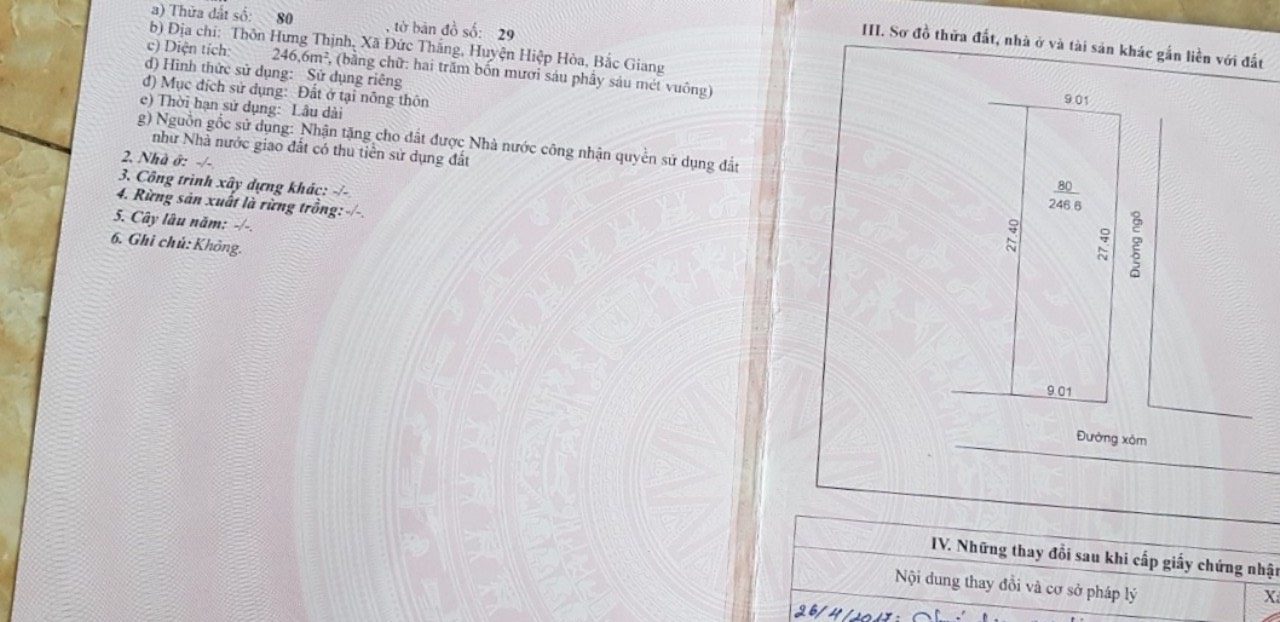 a) Thửa đất số: 80 , tờ bản đồ số: 29
b) Địa chỉ: Thôn Hưng Thịnh, Xã Đức Thắng, Huyện Hiệp Hòa, Bắc Giang
c) Diện tích: 246,6m², (bằng chữ: hai trăm bốn mươi sáu phẩy sáu mét vuông)
d) Hình thức sử dụng: Sử dụng riêng
đ) Mục đích sử dụng: Đất ở tại nông thôn
e) Thời hạn sử dụng: Lâu dài
g) Nguồn gốc sử dụng: Nhận tặng cho đất được Nhà nước công nhận quyền sử dụng đất
như Nhà nước giao đất có thu tiền sử dụng đất
2. Nhà ở: -/-
3. Công trình xây dựng khác: -/-
4. Rừng sản xuất là rừng trồng: -/-.
5. Cây lâu năm: -/-.
6. Ghi chú: Không.
III. Sơ đồ thửa đất, nhà ở và tài sản khác gắn liền với đất
9.01
80
246.6
27.40
27.40
Đường ngõ
9.01
Đường xóm
IV. Những thay đổi sau khi cấp giấy chứng nhận
Nội dung thay đổi và cơ sở pháp lý
26/4/2017: